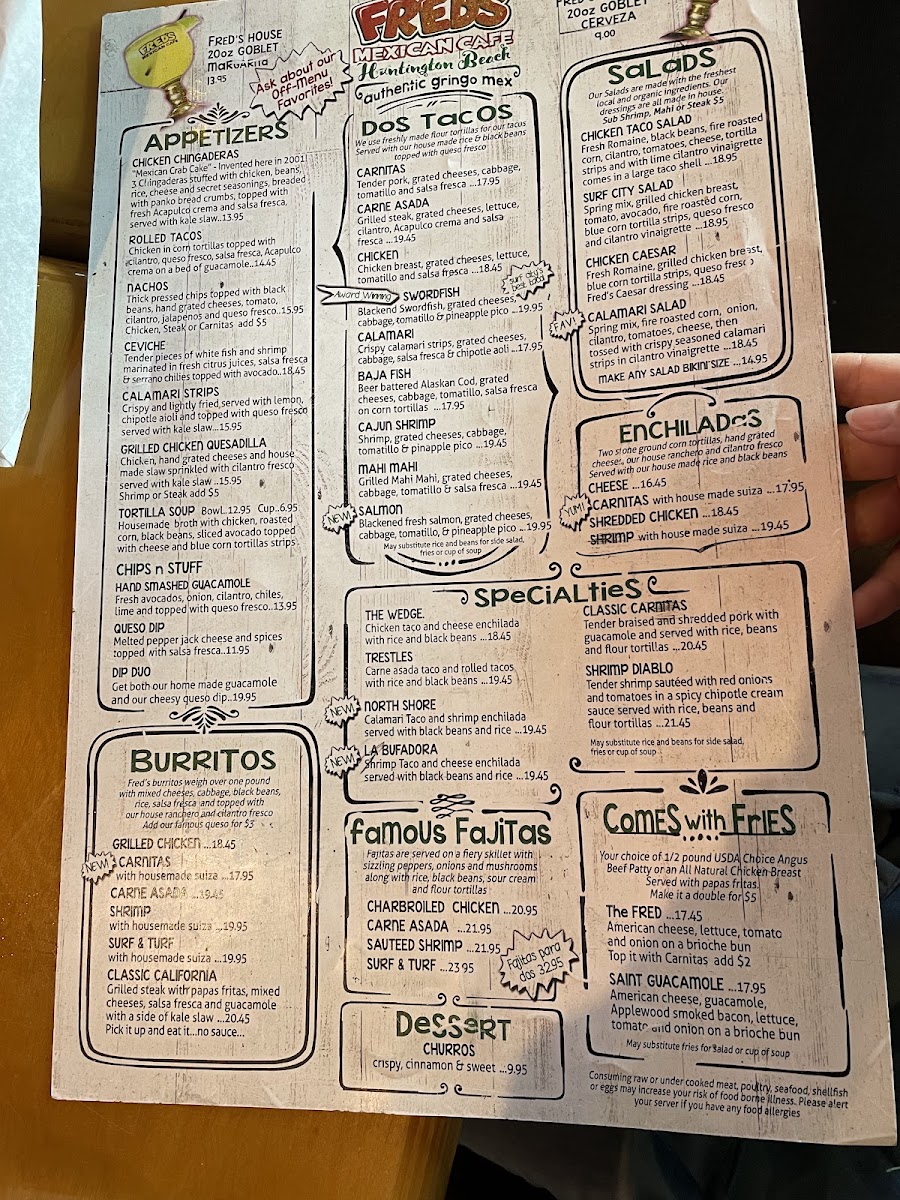 FRED'S
MEXICAN CAFE
FRED'S HOUSE
20oz GOBLET
MARGARITA
13.95
Ask about our
Off-Menu
Favorites!
FRED'S
MEXICAN CAFE
Huntington Beach
authentic gringo mex
20oz GOBLET
CERVEZA
9.00
APPETIZERS
CHICKEN CHINGADERAS
"Mexican Crab Cake" - Invented here in 2001!
3 Chingaderas stuffed with chicken, beans,
rice, cheese and secret seasonings, breaded
with panko bread crumbs, topped with
fresh Acapulco crema and salsa fresca,
served with kale slaw..13.95
ROLLED TACOS
Chicken in corn tortillas topped with
cilantro, queso fresco, salsa fresca, Acapulco
crema on a bed of guacamole..14.45
NACHOS
Thick pressed chips topped with black
beans, hand grated cheeses, tomato,
cilantro, jalapenos and queso fresco..15.95
Chicken, Steak or Carnitas add $5
CEVICHE
Tender pieces of white fish and shrimp
marinated in fresh citrus juices, salsa fresca
& serrano chilies topped with avocado..18.45
CALAMARI STRIPS
Crispy and lightly fried,served with lemon,
chipotle aioli and topped with queso fresco
served with kale slaw...15.95
GRILLED CHICKEN QUESADILLA
Chicken, hand grated cheeses and house
made slaw sprinkled with cilantro fresco
served with kale slaw ..15.95
Shrimp or Steak add $5
TORTILLA SOUP Bowl..12.95 Cup..6.95
Housemade broth with chicken, roasted
corn, black beans, sliced avocado topped
with cheese and blue corn tortillas strips
CHIPS n STUFF
HAND SMASHED GUACAMOLE
Fresh avocados, onion, cilantro, chiles,
lime and topped with queso fresco..13.95
QUESO DIP
Melted pepper jack cheese and spices
topped with salsa fresca..11.95
DIP DUO
Get both our home made guacamole
and our cheesy queso dip..19.95
BURRITOS
Fred's burritos weigh over one pound
with mixed cheeses, cabbage, black beans,
rice, salsa fresca and topped with
our house ranchero and cilantro fresco
Add our famous queso for $3
GRILLED CHICKEN ...18.45
NEW!
CARNITAS
with housemade suiza ...17.95
CARNE ASADA ...19.45
SHRIMP
with housemade suiza ...19.95
SURF & TURF
with housemade suiza ...19.95
CLASSIC CALIFORNIA
Grilled steak with papas fritas, mixed
cheeses, salsa fresca and guacamole
with a side of kale slaw ...20.45
Pick it up and eat it...no sauce...
DOS TACOS
We use freshly made flour tortillas for our tacos
Served with our house made rice & black beans
topped with queso fresco
CARNITAS
Tender pork, grated cheeses, cabbage,
tomatillo and salsa fresca ...17.95
CARNE ASADA
Grilled steak, grated cheeses, lettuce,
cilantro, Acapulco crema and salsa
fresca ...19.45
CHICKEN
Chicken breast, grated cheeses, lettuce,
tomatillo and salsa fresca ...18.45
surf city's
best taco
Award Winning
SWORDFISH
Blackend Swordfish, grated cheeses,
cabbage, tomatillo & pineapple pico ...19.95
CALAMARI
Crispy calamari strips, grated cheeses,
cabbage, salsa fresca & chipotle aoli ...17.95
BAJA FISH
Beer battered Alaskan Cod, grated
cheeses, cabbage, tomatillo, salsa fresca
on corn tortillas ...17.95
CAJUN SHRIMP
Shrimp, grated cheeses, cabbage,
tomatillo & pinapple pico ...19.45
MAHI MAHI
Grilled Mahi Mahi, grated cheeses,
cabbage, tomatillo & salsa fresca ...19.45
NEW!
SALMON
Blackened fresh salmon, grated cheeses,
cabbage, tomatillo, & pineapple pico ...19.95
May substitute rice and beans for side salad,
fries or cup of soup
SALADS
Our Salads are made with the freshest
local and organic ingredients. Our
dressings are all made in house.
Sub Shrimp, Mahi or Steak $5
CHICKEN TACO SALAD
Fresh Romaine, black beans, fire roasted
corn, cilantro, tomatoes, cheese, tortilla
strips and with lime cilantro vinaigrette
comes in a large taco shell ...18.95
SURF CITY SALAD
Spring mix, grilled chicken breast,
tomato, avocado, fire roasted corn,
blue corn tortilla strips, queso fresco
and cilantro vinaigrette ...18.95
CHICKEN CAESAR
Fresh Romaine, grilled chicken breast,
blue corn tortilla strips, queso fresco
Fred's Caesar dressing ...18.45
FAV!
CALAMARI SALAD
Spring mix, fire roasted corn, onion,
cilantro, tomatoes, cheese, then
tossed with crispy seasoned calamari
strips in cilantro vinaigrette ...18.45
MAKE ANY SALAD BIKINI SIZE ...14.95
ENCHILADAS
Two stone ground corn tortillas, hand grated
cheeses, our house ranchero and cilantro fresco
Served with our house made rice and black beans
CHEESE ...16.45
YUM!
CARNITAS with house made suiza ...17.95
SHREDDED CHICKEN ...18.45
SHRIMP with house made suiza ...19.45
SPECIALTIES
THE WEDGE.
Chicken taco and cheese enchilada
with rice and black beans ...18.45
TRESTLES
Carne asada taco and rolled tacos
with rice and black beans ...19.45
NEW!
NORTH SHORE
Calamari Taco and shrimp enchilada
served with black beans and rice ...19.45
NEW!
LA BUFADORA
Shrimp Taco and cheese enchilada
served with black beans and rice ...19.45
CLASSIC CARNITAS
Tender braised and shredded pork with
guacamole and served with rice, beans
and flour tortillas ...20.45
SHRIMP DIABLO
Tender shrimp sautéed with red onions
and tomatoes in a spicy chipotle cream
sauce served with rice, beans and
flour tortillas ...21.45
May substitute rice and beans for side salad,
fries or cup of soup
FAMOUS FAJITAS
Fajitas are served on a fiery skillet with
sizzling peppers, onions and mushrooms
along with rice, black beans, sour cream
and flour tortillas
CHARBROILED CHICKEN ...20.95
CARNE ASADA ...21.95
SAUTEED SHRIMP ...21.95
SURF & TURF ...23.95
Fajitas para
dos 32.95
DESSERT
CHURROS
crispy, cinnamon & sweet ...9.95
COMES with FRIES
Your choice of 1/2 pound USDA Choice Angus
Beef Patty or an All Natural Chicken Breast
Served with papas fritas.
Make it a double for $5
The FRED ...17.45
American cheese, lettuce, tomato
and onion on a brioche bun
Top it with Carnitas add $2
SAINT GUACAMOLE ...17.95
American cheese, guacamole,
Applewood smoked bacon, lettuce,
tomato and onion on a brioche bun
May substitute fries for salad or cup of soup
Consuming raw or under cooked meat, poultry, seafood, shellfish
or eggs may increase your risk of food borne illness. Please alert
your server if you have any food allergies